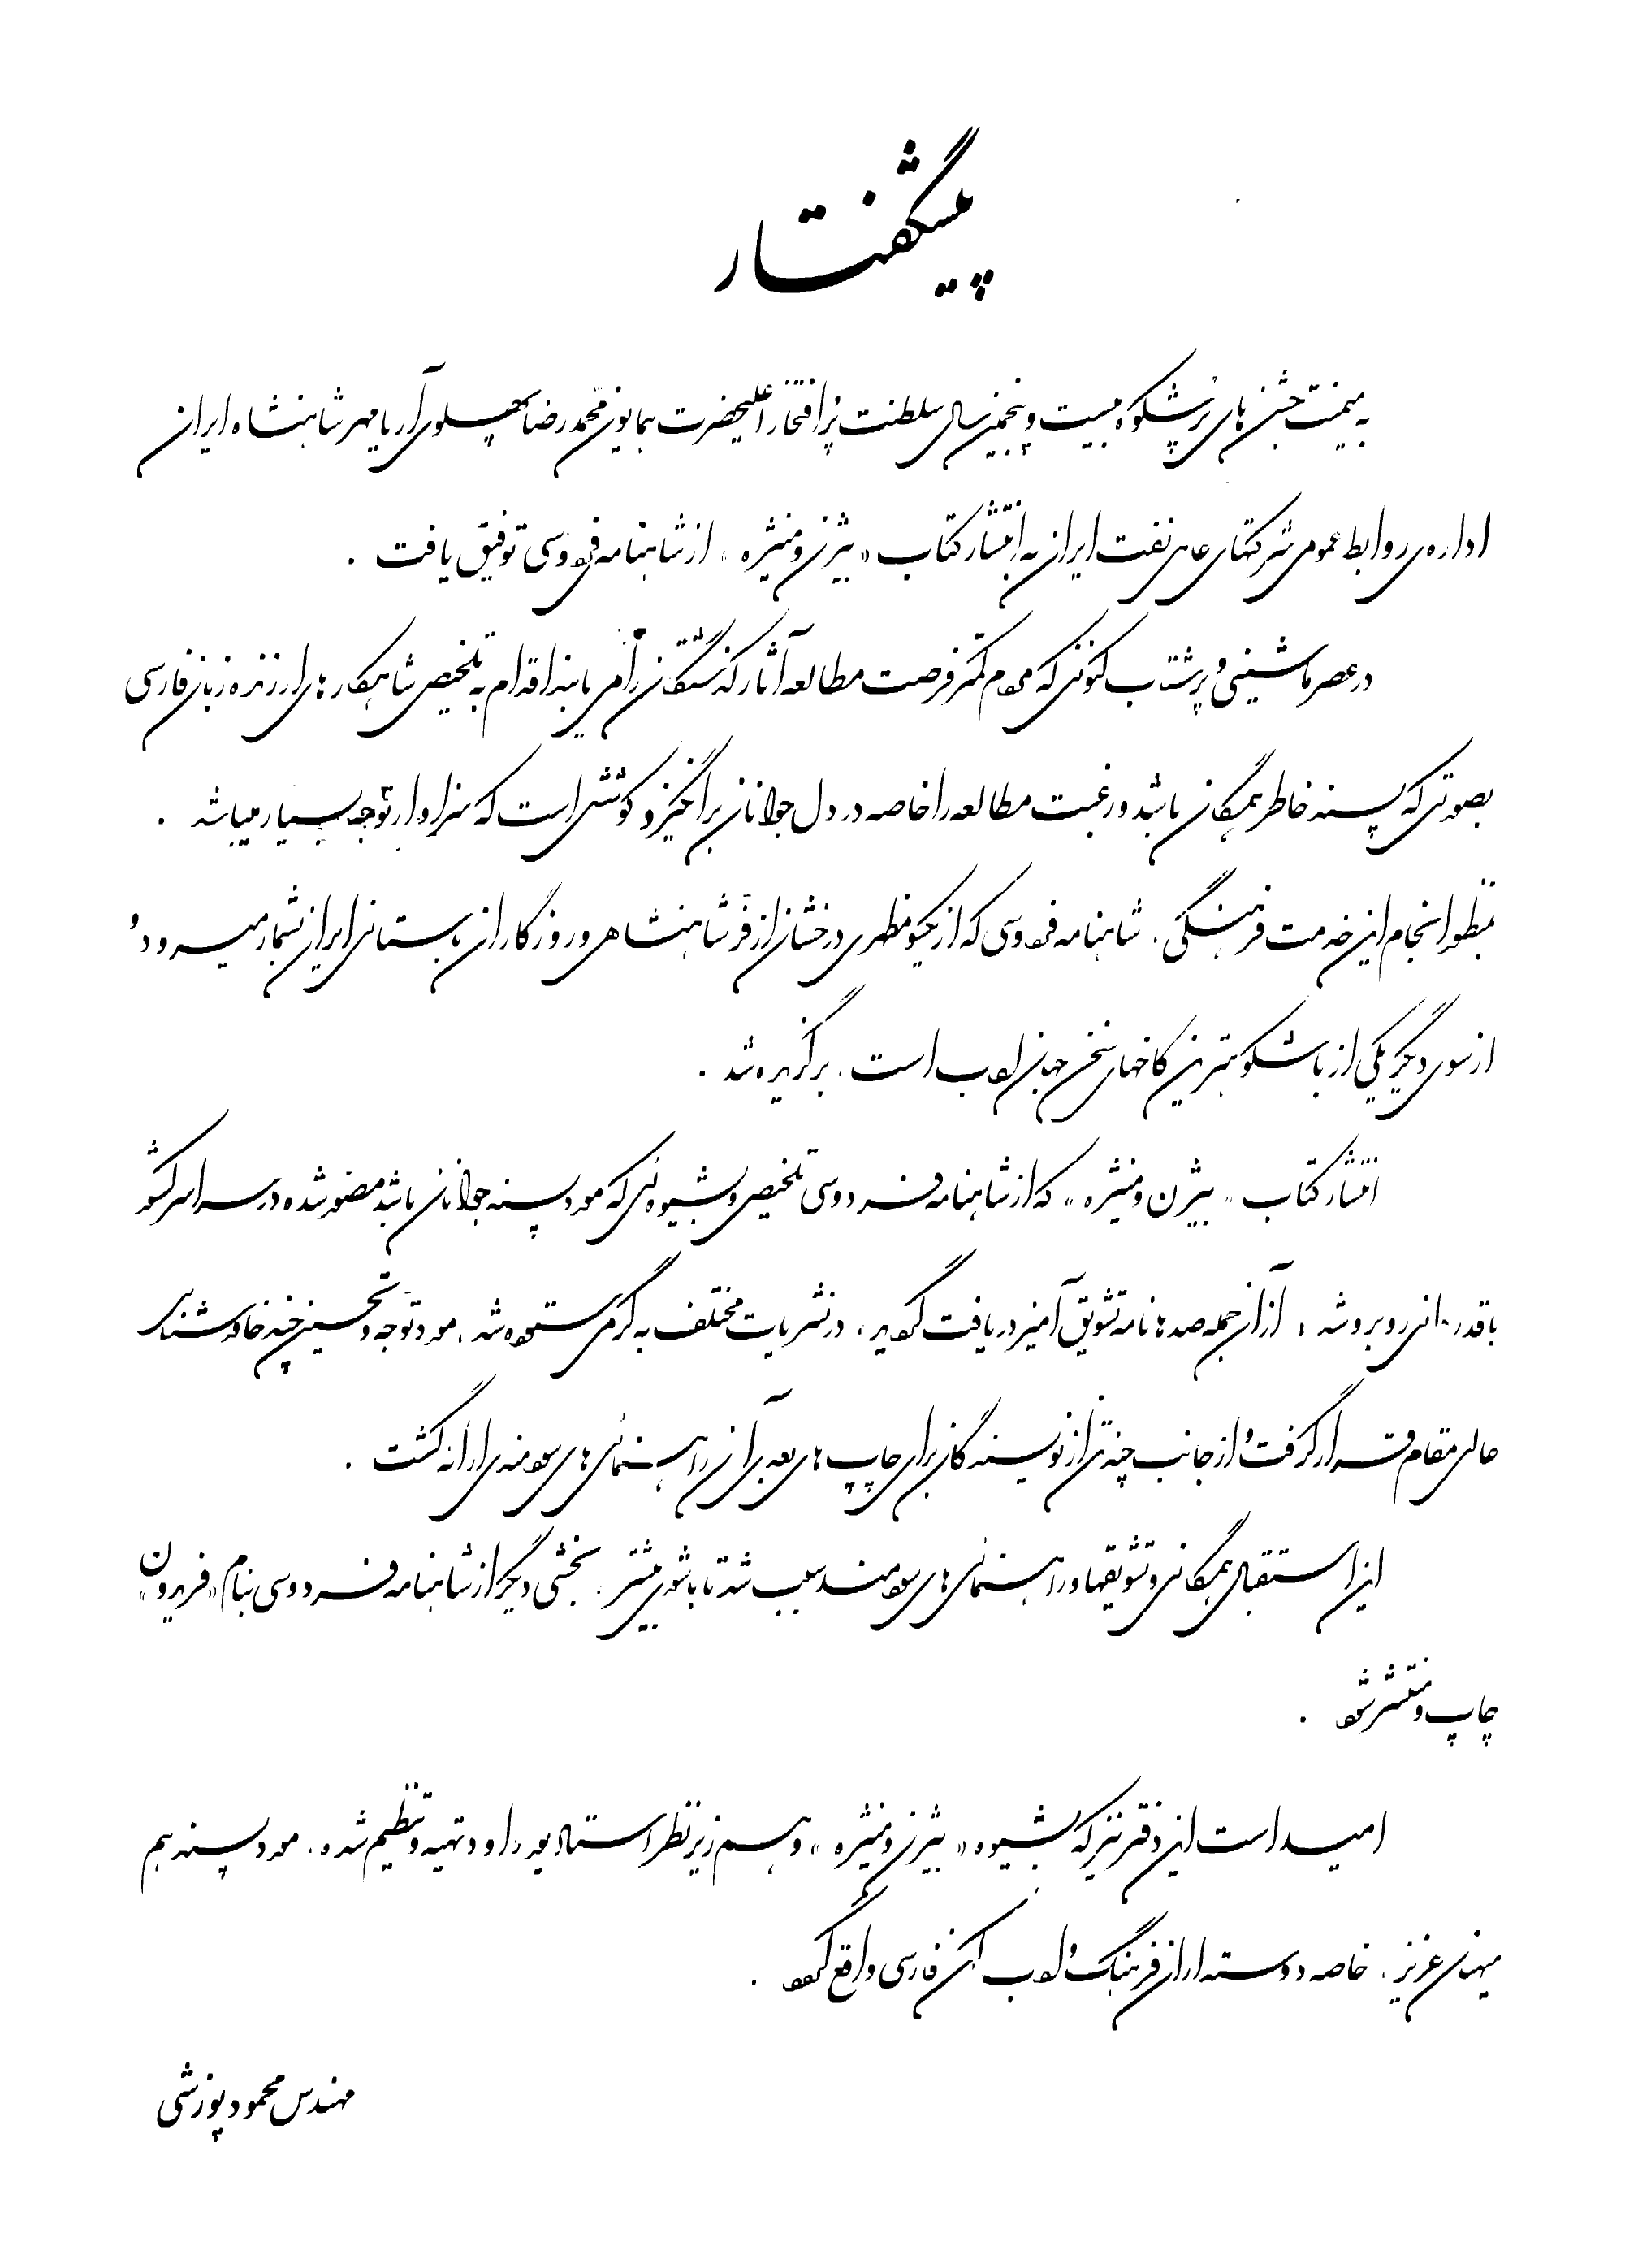 پیشگفتار
به میمنت جشن های پرشکوه بیست و پنجمین سال سلطنت پُرافتخار اعلیحضرت همایون محمدرضا پهلوی آریامهر شاهنشاه ایران
اداره‌ی روابط عمومی شرکتهای عامل نفت ایران به انتشار کتاب «بیژن و منیژه» از شاهنامه فردوسی توفیق یافت .
در عصر ماشینی و پرشتاب کنونی که مردم کمتر فرصت مطالعه آثار گذشتگان را می یابند اقدام به تلخیص شاهکارهای ارزنده زبان فارسی
بصورتی که پسند خاطر همگان باشد و رغبت مطالعه را خاصه در دل جوانان برانگیزد کوششی است که سزاوار توجه بسیار میباشد .
بمنظور انجام این خدمت فرهنگی، شاهنامه فردوسی که از یکسو مظهری درخشان از فرّ شاهنشاهی و روزگاران باستانی ایران بشمار میرود وُ
از سوی دیگر یکی از باشکوهترین کاخهای سخن جهان ادب است، برگزیده شد .
انتشار کتاب «بیژن و منیژه» که از شاهنامه فردوسی تلخیص و بشیوه ئی که مورد پسند جوانان باشد مصور شده در سراسر کشور
با قدردانی روبرو شد ؛ از آن جمله صدها نامه تشویق آمیز دریافت گردید، در نشریات مختلف به گرمی ستوده شد، مورد توجه و تحسین چند خاورشناس
عالی مقام قرار گرفت وُ از جانب چند تن از نویسندگان برای چاپ های بعدی آن راهنمائی های سودمندی ارائه گشت .
این استقبال همگانی و تشویقها و راهنمائی های سودمند سبب شد تا با شوق بیشتر، بخشی دیگر از شاهنامه فردوسی بنام «فریدون»
چاپ و منتشر شود .
امید است این دفتر نیز که بشیوه «بیژن و منیژه» و هم زیر نظر استاد پورداود تهیه و تنظیم شده، مورد پسند هم
میهنان عزیز، خاصه دوستداران فرهنگ وُ ادب کهن فارسی واقع گردد .
مهندس محمود پوزشی